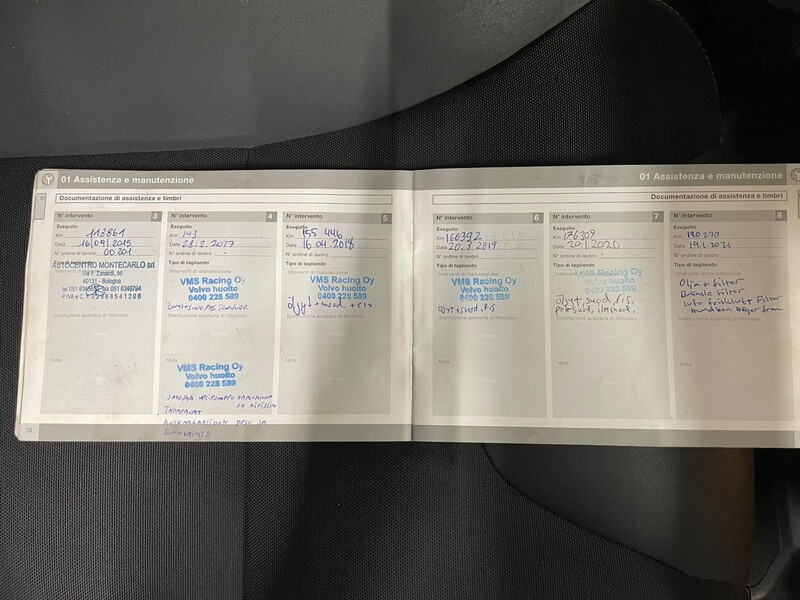 01 Assistenza e manutenzione
Documentazione di assistenza e timbri
N° intervento 3
Eseguito
Km 113861
Data 16/09/2015
N° ordine di lavoro 00201
AUTOCENTRO MONTECARLO srl
Via F. Zanardi, 56
40131 - Bologna
P.IVA e C.F. 02968541208
Sostituzione ausiliaria di filtro/olio
Nota
N° intervento 4
Eseguito
Km 143
Data 28.2.2017
N° ordine di lavoro
Tipo di tagliando
Interventi di manutenzione
VMS Racing Oy
Volvo huolto
0400 228 589
Sostituzione ausiliaria di filtro/olio
Nota
VMS Racing Oy
Volvo huolto
0400 228 589
N° intervento 5
Eseguito
Km 155 446
Data 16.04.2018
N° ordine di lavoro
Tipo di tagliando
Interventi di manutenzione
VMS Racing Oy
Volvo huolto
0400 228 589
öljyt + suod. + ris.
Sostituzione ausiliaria di filtro/olio
Nota
10
01 Assistenza e manutenzione
Documentazione di assistenza e timbri
N° intervento 6
Eseguito
Km 166392
Data 20.7.2019
N° ordine di lavoro
Tipo di tagliando
VMS Racing Oy
Volvo huolto
0400 228 589
öljyt + suod. ris
Sostituzione ausiliaria di filtro/olio
Nota
N° intervento 7
Eseguito
Km 176309
Data 20.1.2020
N° ordine di lavoro
Tipo di tagliando
VMS Racing Oy
Volvo huolto
0400 228 589
öljyt, suod, ris,
Sostituzione ausiliaria di filtro/olio
Nota
N° intervento 8
Eseguito
Km 190270
Data 19.1.2021
N° ordine di lavoro
Tipo di tagliando
Interventi di manutenzione
Olja + filter
Bränsle filter
luft friskluft Filter
Sostituzione ausiliaria di filtro/olio
Nota